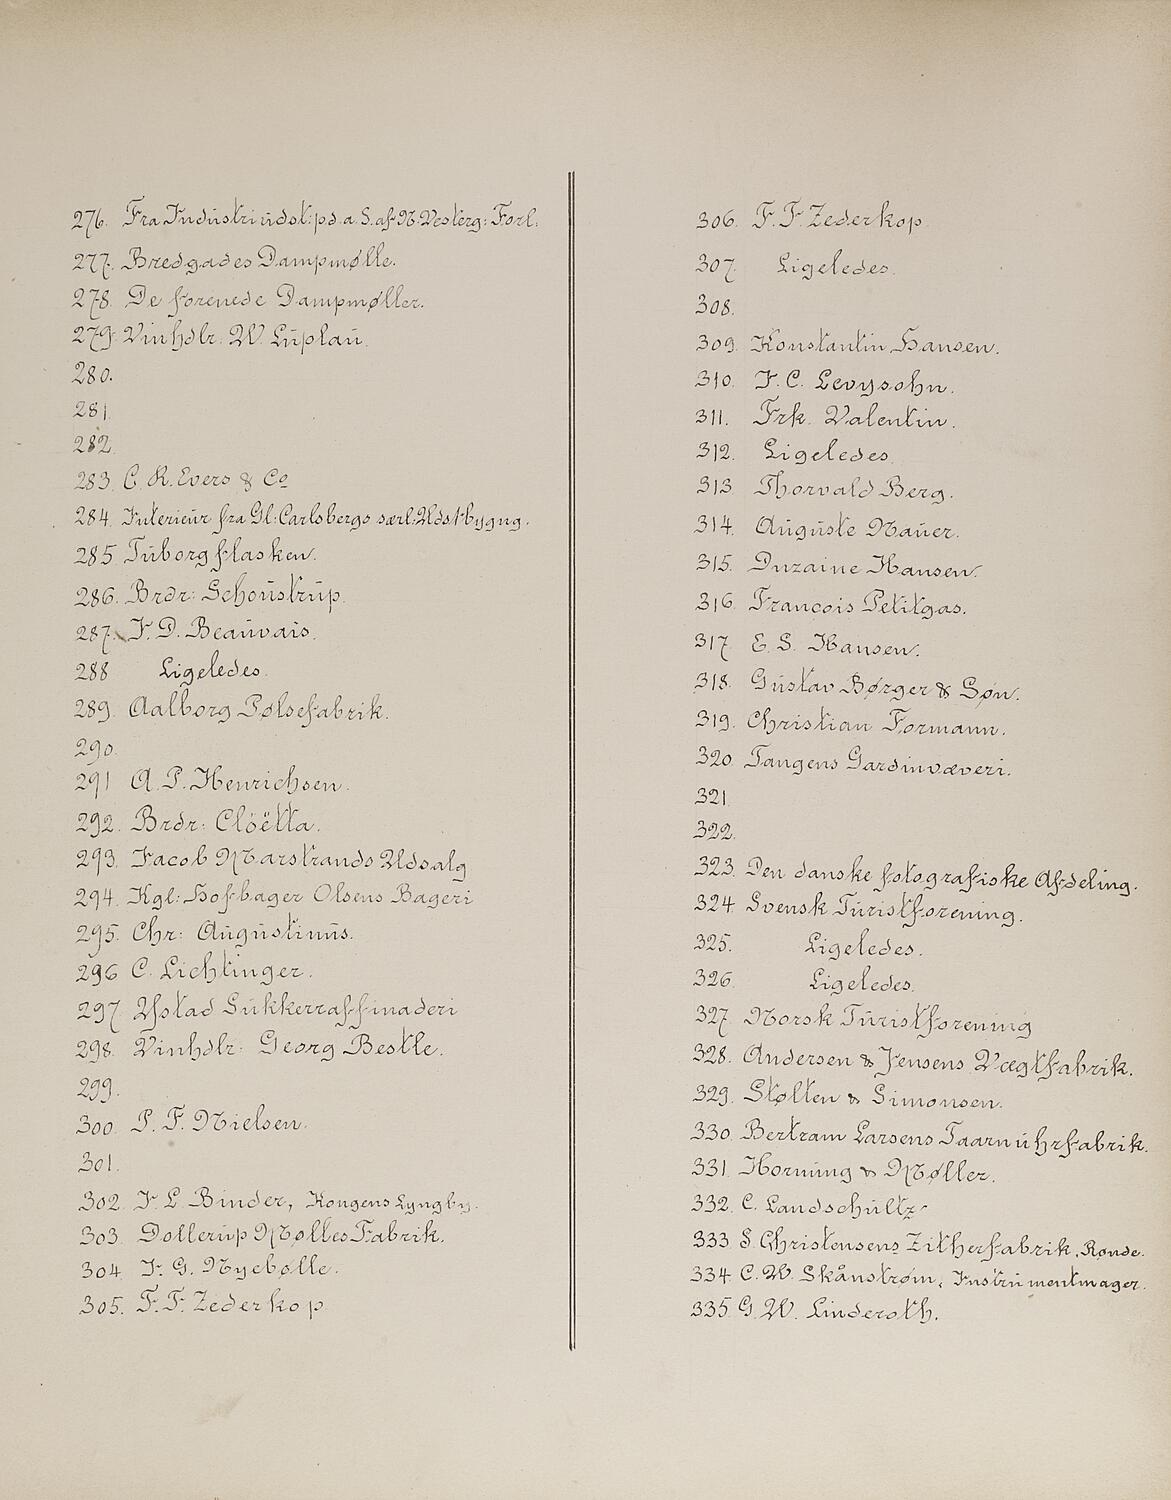 276. Fra Industriudst: pd. a. S. af N. Vesterg: Forl.
277. Bredgades Dampmølle.
278. De forenede Dampmøller.
279. Vinhdlr. W. Luplau.
280.
281
282
283. C. R. Evers & Co
284. Interieur fra Gl: Carlsbergs særl: Udstbygng.
285 Tuborgflasken.
286. Brdr: Schoustrup.
287. I. D. Beauvais.
288 Ligeledes.
289. Aalborg Pølsefabrik.
290.
291 A. P. Henrichsen.
292. Brdr: Clöëtta.
293. Jacob Marstrands Udsalg
294. Kgl: Hofbager Olsens Bageri
295. Chr: Augustinus.
296 C. Lichtinger.
297 Ystad Sukkerraffinaderi
298. Vinhdlr: Georg Bestle.
299.
300. P. F. Nielsen.
301.
302. I. L. Binder, Kongens Lyngby.
303. Dollerup Mølles Fabrik.
304. I. G. Nyebølle.
305. F. F. Zederkop
306. F. F. Zederkop.
307. Ligeledes.
308.
309. Konstantin Hansen.
310. I. C. Levysohn.
311. Frk. Valentin.
312. Ligeledes.
313 Thorvald Berg.
314. Auguste Mauer.
315. Duzaine Hansen.
316. Francois Petitgas.
317 E. S. Hansen.
318. Gustav Børger & Søn.
319. Christian Formann.
320. Tangens Gardinvæveri.
321
322.
323. Den danske fotografiske Afdeling.
324 Svensk Turistforening.
325. Ligeledes.
326. Ligeledes.
327. Norsk Turistforening
328. Andersen & Jensens Vægtfabrik.
329. Støtten & Simonsen.
330. Bertram Larsens Taarnuhrfabrik.
331. Hornung & Møller.
332. C. Landschultz
333 S. Christensens Zitherfabrik, Rønde.
334. C. W. Skånstrøm, Instrumentmager.
335. G. W. Linderoth.